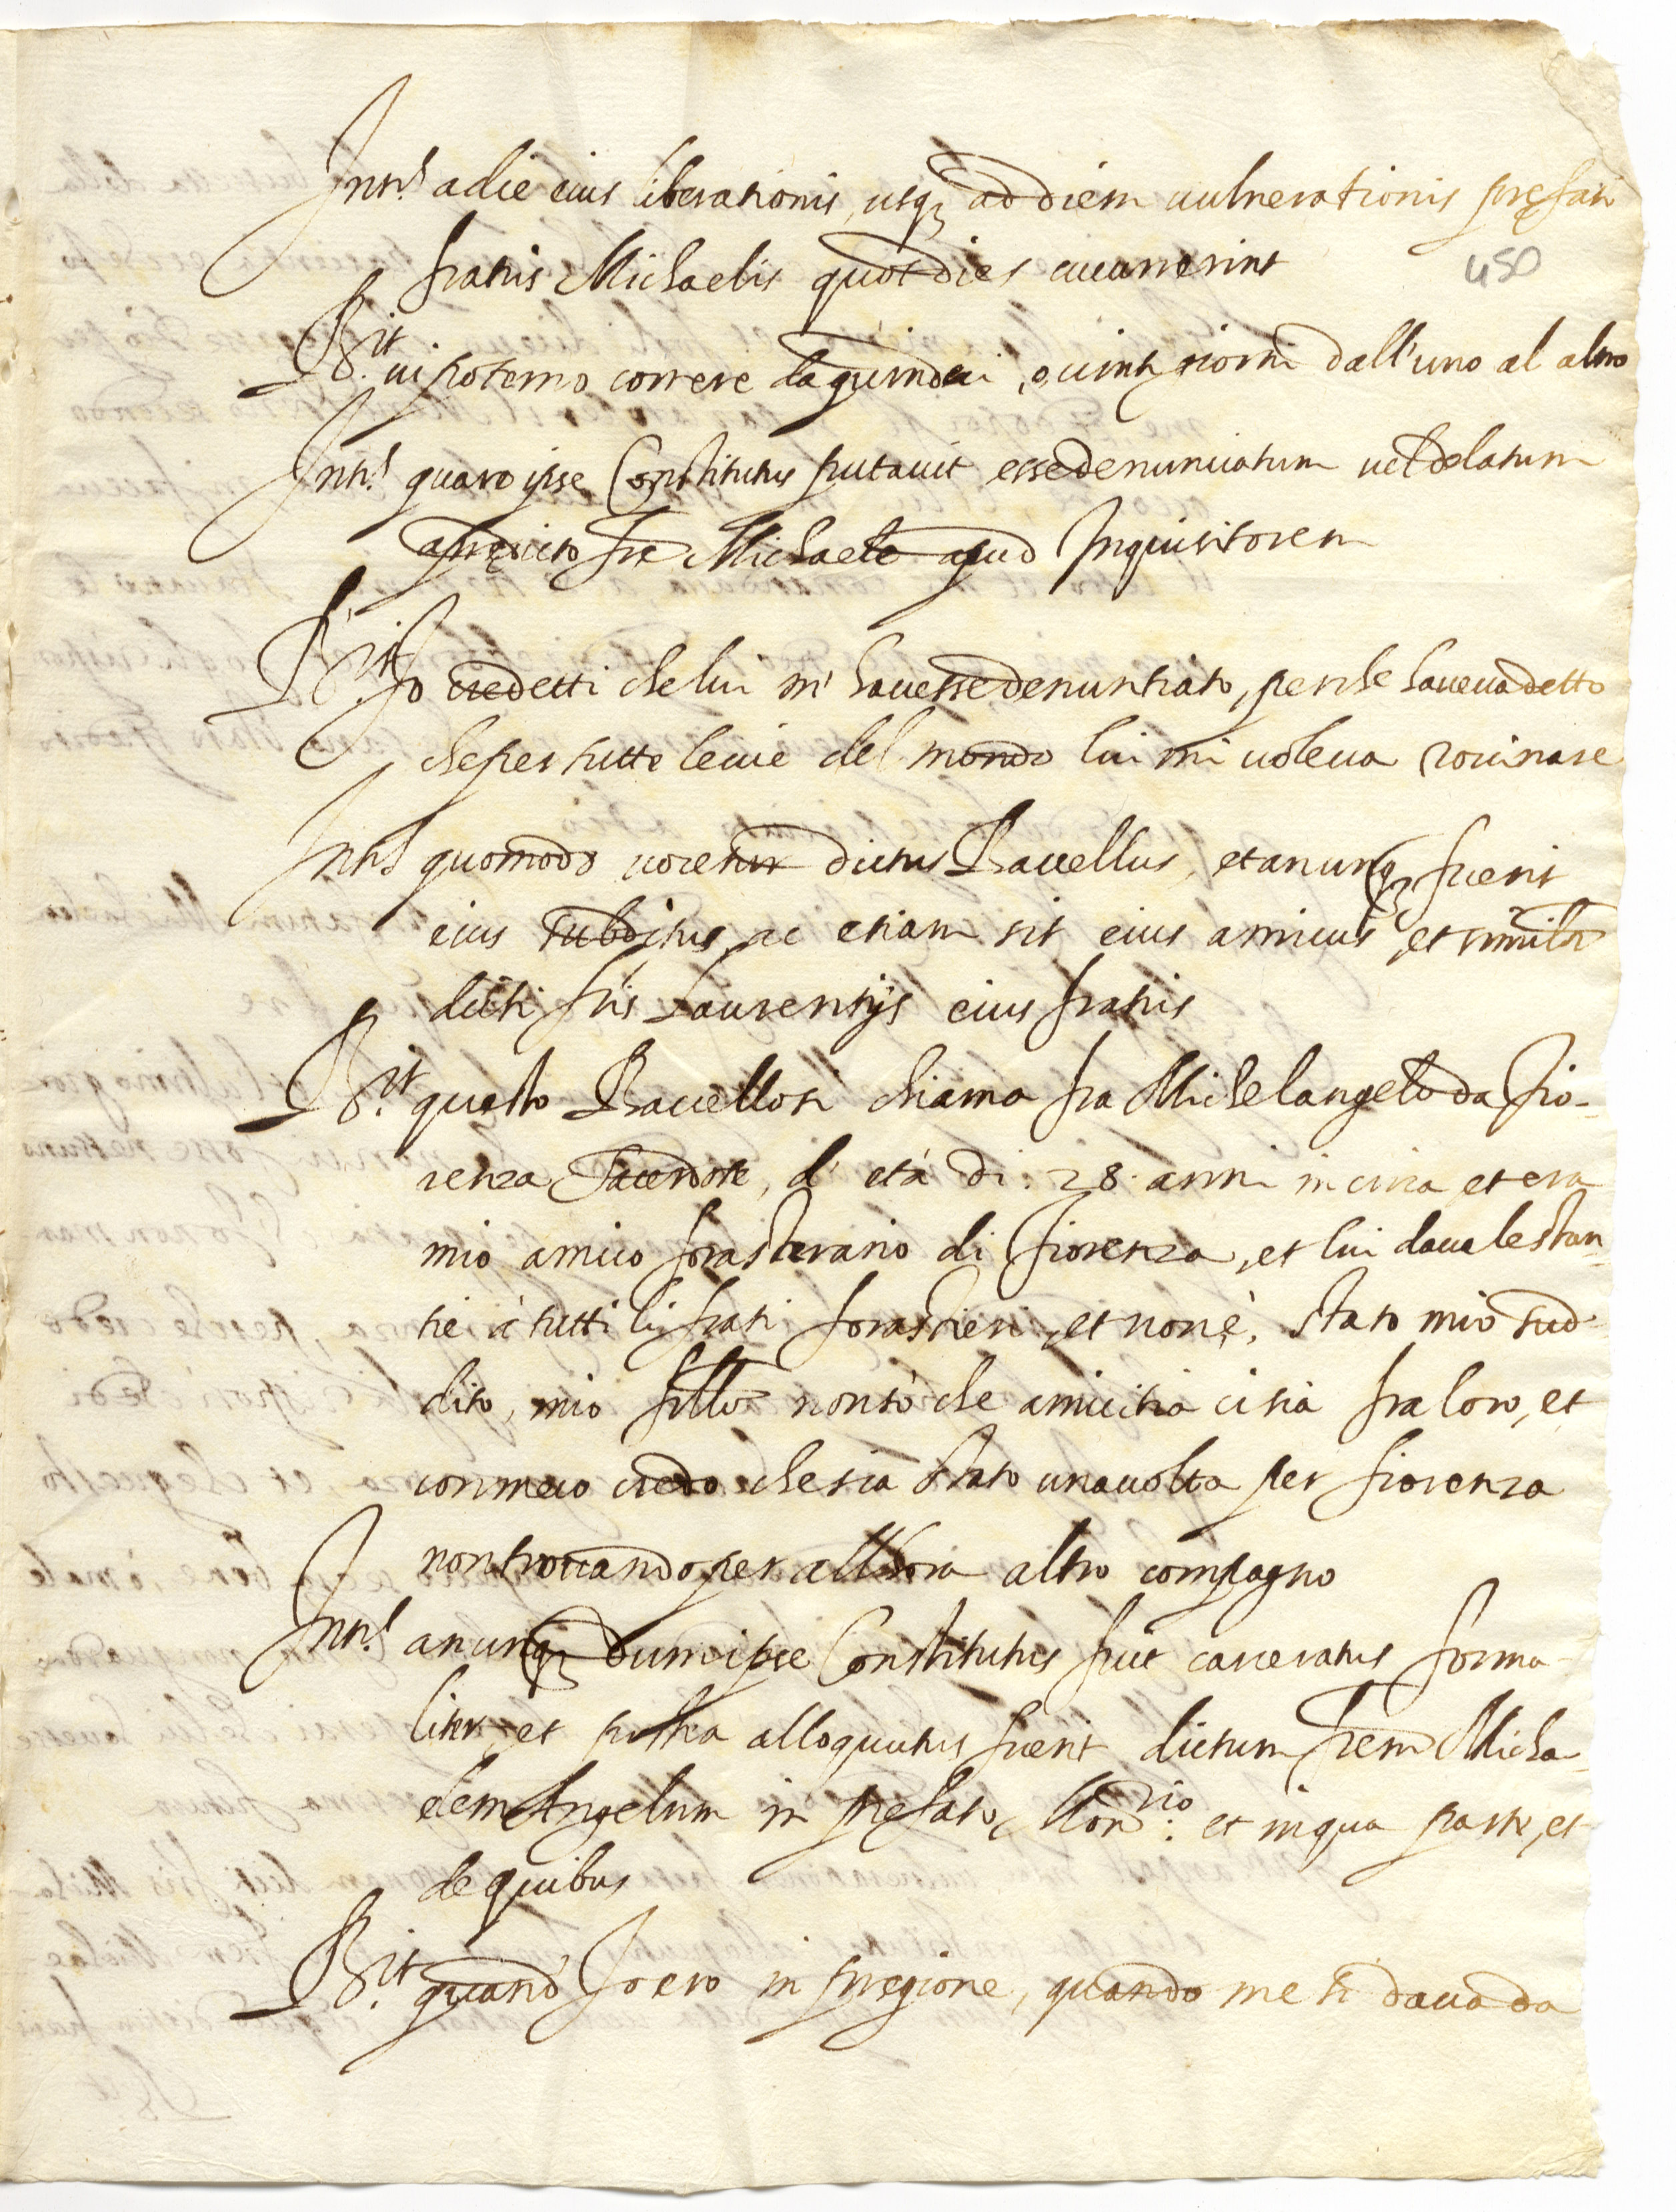 Intus a die eius liberationis, usq3 ad diem uulnerationis pręfati
fratris Michaelis quot dies cucurrerint
450
R.it ui poterno correre da quindeci, o uinti giorni dall'uno al altro
Int.s quare ipse Constitutus putauit esse denunciatum uel delatum
a prędicto fre Michaele apud Inquisitorem
R.it Io credetti che lui m' hauesse denuntiato, perche haueua detto
che per tutte le uie del mondo lui mi uoleua rouinare
Int.s quomodo uocetur dictus Bacellus, et an unq3 fuerit
eius subditus, ac etiam sit eius amicus, et similr
dicti fris Laurentijs eius fratris
R.it questo Bacello si chiama fra Michelangelo da Fio-
renza Sacerdote, d' età di. 28. anni in circa et era
mio amico forasterario di Fiorenza, et lui daua le stan
tie à tutti li frati forastieri, et non è, stato mio sud-
dito, mio fr̃llo non sò che amicitia ci sia fra loro, et
con meco credo che sia stato una uolta per fiorenza
non trouando per all'hora altro compagno
Int.s an unq3 dum ipse Constitutus fuit carceratus forma-
liter, et postea alloquutus fuerit dictum frem Micha-
elem Angelum in pręfato Mon.rio et in qua parte, et
de quibus
R.it quand' Io ero in pregione, quando me si daua da